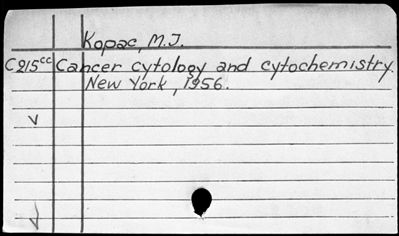 Kopac, M.J.
C215cc Cancer cytology and cytochemistry.
New York, 1956.
v